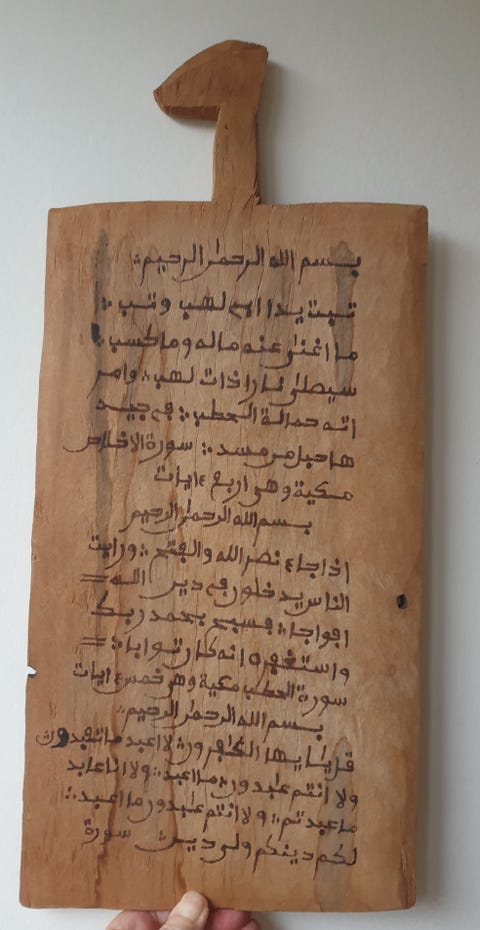 بسم الله الرحمن الرحيم
تبت يدا ابي لهب وتب
ما اغنى عنه ماله وما كسب
سيصلى نارا ذات لهب وامر
اته حمالة الحطب في جيد
ها حبل من مسد سورة الاخلاص
مكية وهي اربع ءايات
بسم الله الرحمن الرحيم
اذا جاء نصر الله والفتح ورايت
الناس يدخلون في دين الله
افواجا فسبح بحمد ربك
واستغفره انه كان توابا
سورة الحطب مكية وهي خمس ءايات
بسم الله الرحمن الرحيم
قل يا يها الكفرون لا اعبد ما تعبدون
ولا انتم عبدون ما اعبد ولا انا عابد
ما عبدتم ولا انتم عبدون ما اعبد
لكم دينكم ولي دين سورة